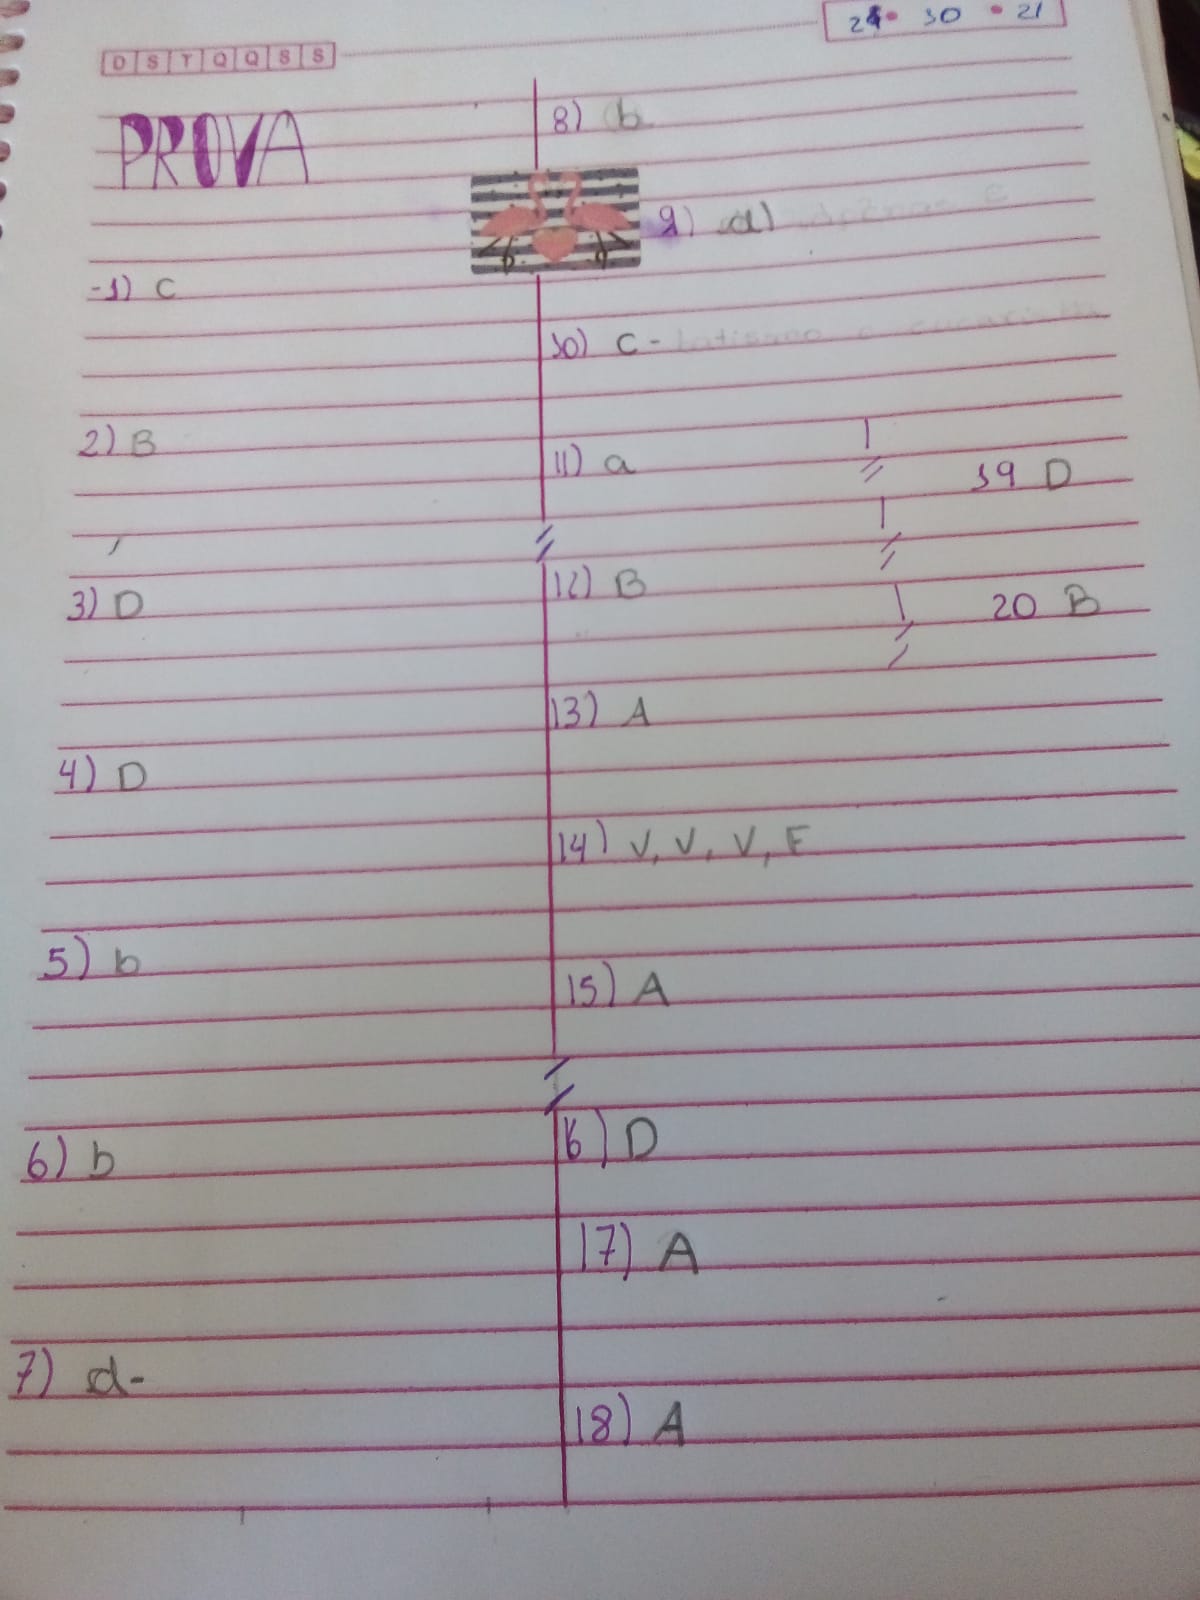 D S T Q Q S S
24 • 10 • 21
PROVA
-1) C
2) B
3) D
4) D
5) b
6) b
7) d-
8) b
9) d)
10) C -
11) a
12) B
13) A
14) V, V, V, F
15) A
16) D
17) A
18) A
19 D
20 B